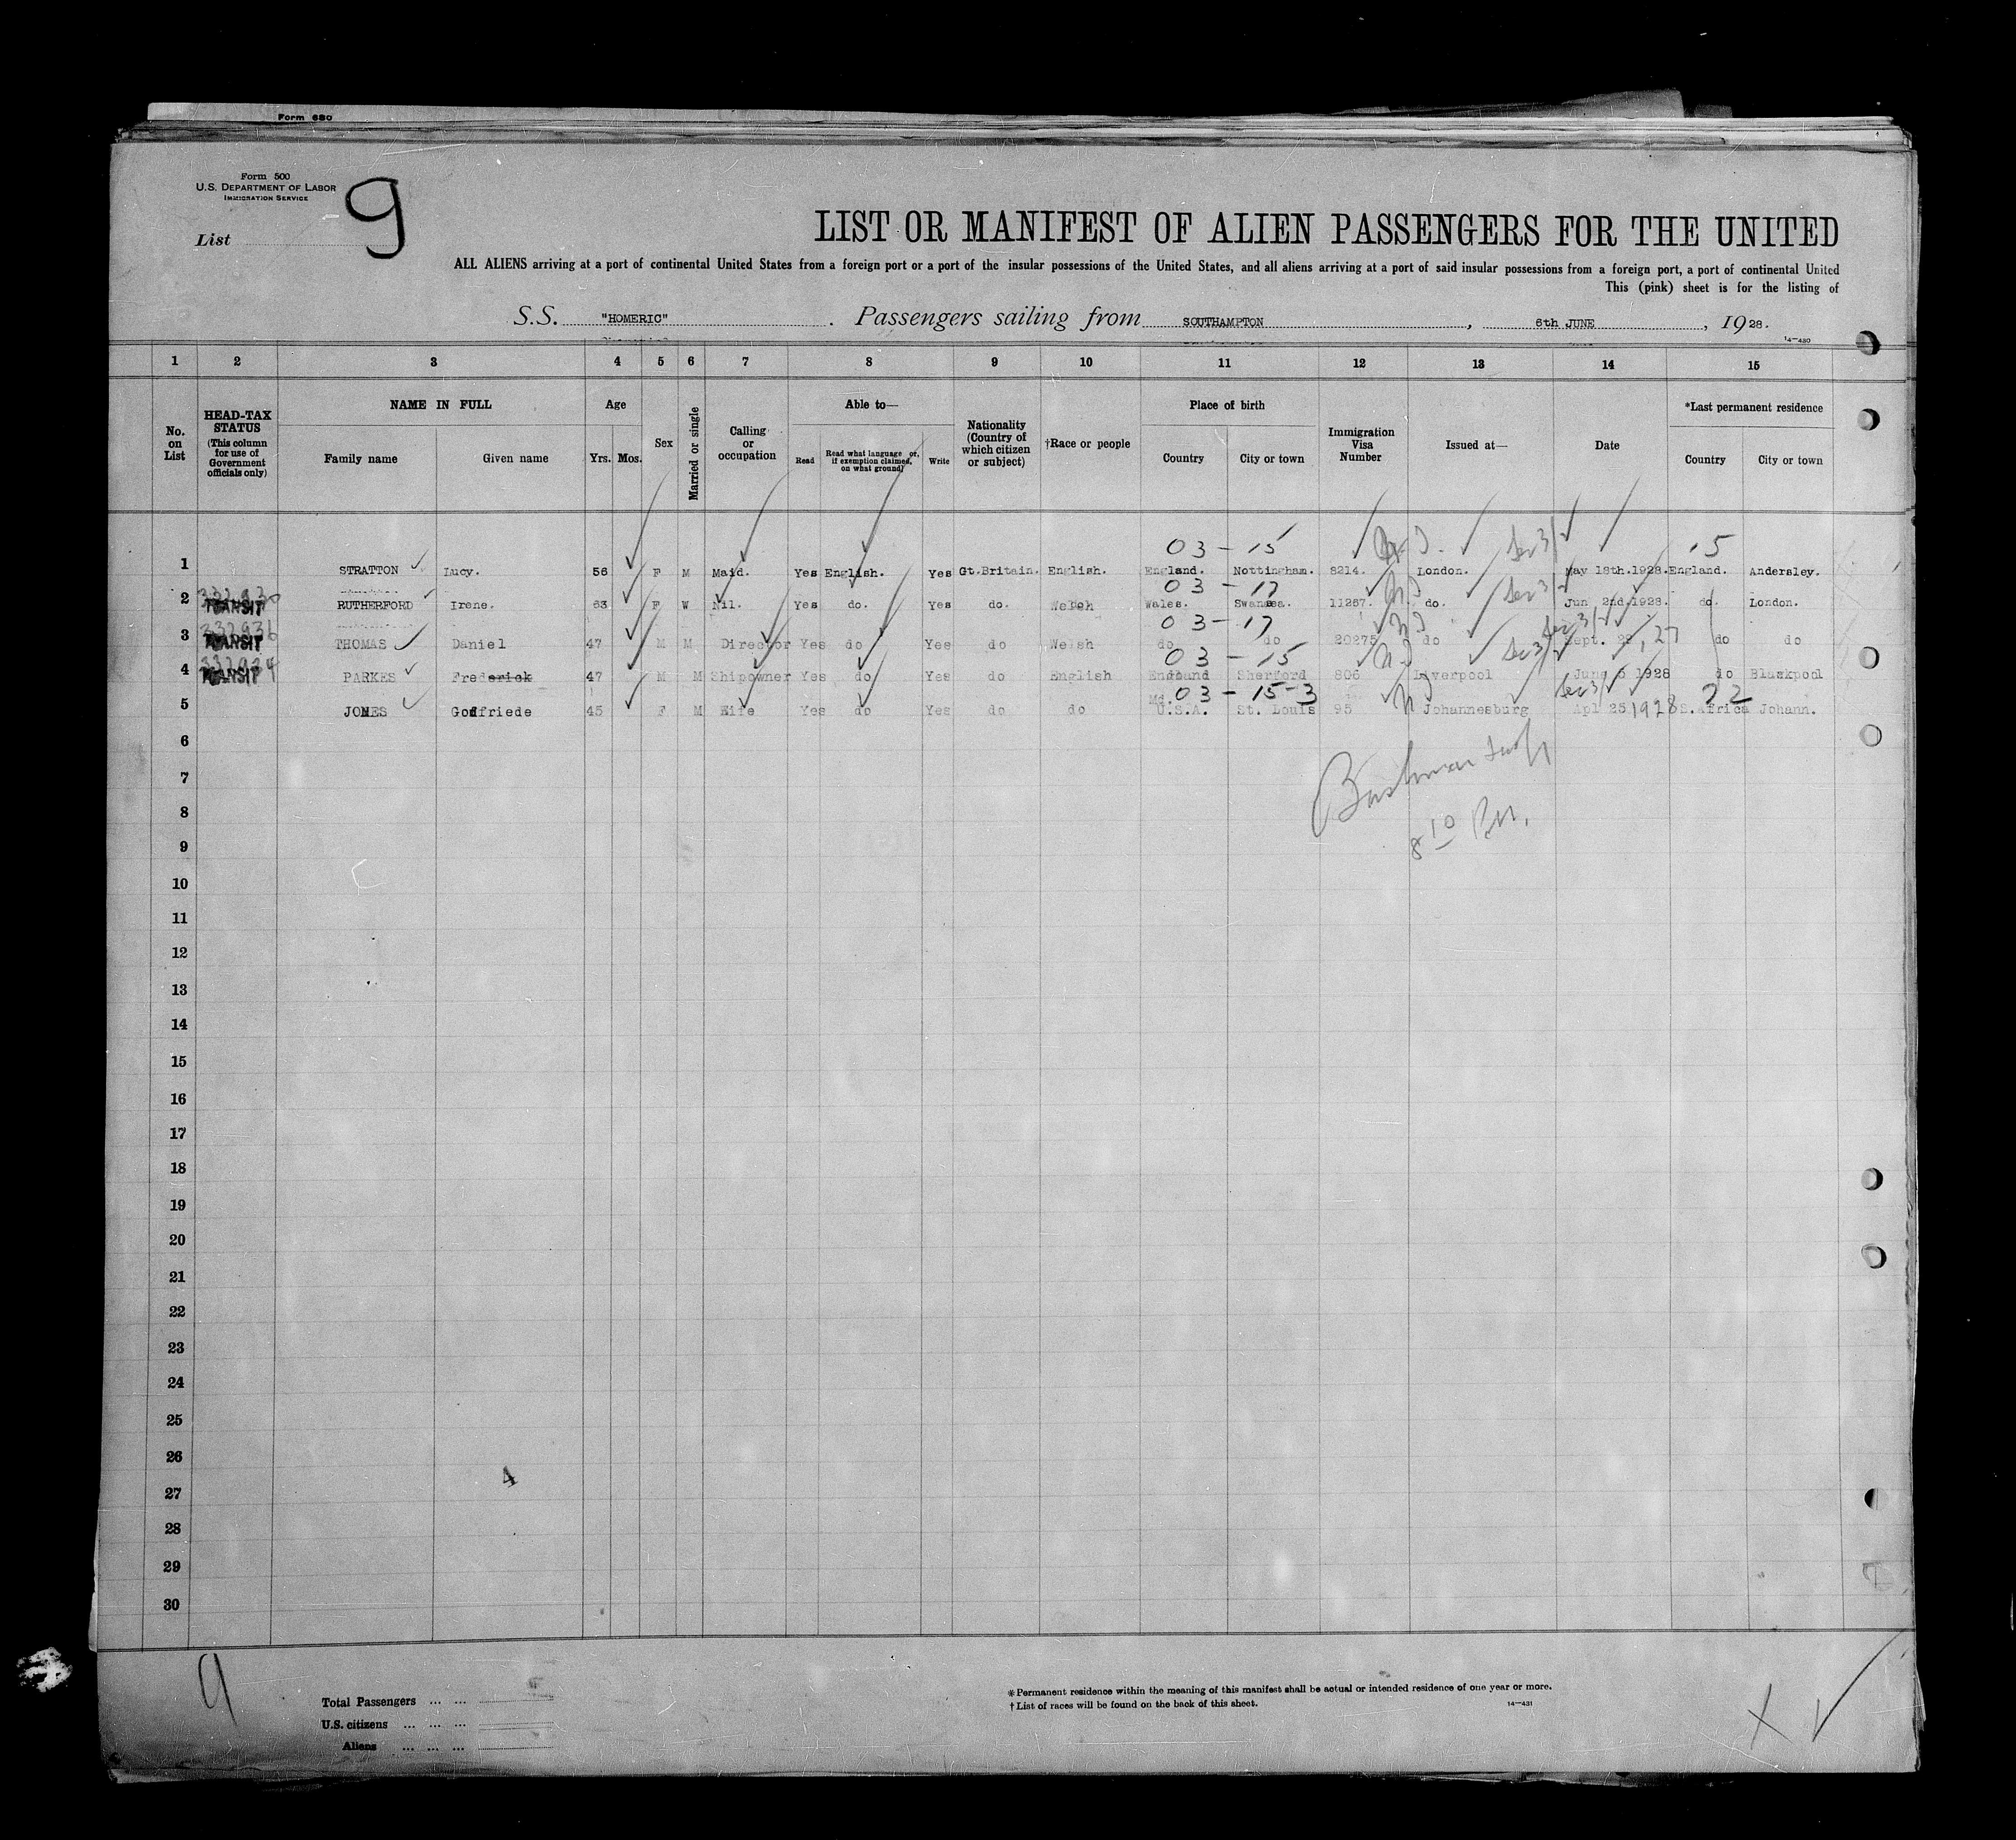 Form 680
Form 500
U.S. DEPARTMENT OF LABOR
IMMIGRATION SERVICE
List 9
LIST OR MANIFEST OF ALIEN PASSENGERS FOR THE UNITED
ALL ALIENS arriving at a port of continental United States from a foreign port or a port of the insular possessions of the United States, and all aliens arriving at a port of said insular possessions from a foreign port, a port of continental United
This (pink) sheet is for the listing of
S.S. "HOMERIC". Passengers sailing from SOUTHAMPTON, 6th JUNE, 1928.
14—430
1 2 3 4 5 6 7 8 9 10 11 12 13 14 15
No. on List
HEAD-TAX STATUS (This column for use of Government officials only)
NAME IN FULL
Family name Given name
Age
Yrs. Mos.
Sex
Married or single
Calling or occupation
Able to—
Read Read what language or, if exemption claimed, on what ground Write
Nationality (Country of which citizen or subject)
†Race or people
Place of birth
Country City or town
Immigration Visa Number
Issued at—
Date
*Last permanent residence
Country City or town
03 - 15 15
1 STRATTON Lucy. 56 F M Maid. Yes English. Yes Gt.Britain. English. England. Nottingham. 8214. London. May 18th.1928. England. Andersley.
03 - 17
2 TRANSIT RUTHERFORD Irene. 63 F W Nil. Yes do. Yes do. Welsh Wales. Swansea. 11267. do. Jun 2nd.1928. do. London.
03 - 17
3 332936 TRANSIT THOMAS Daniel 47 M M Director Yes do Yes do Welsh do do 20275 do Sept. 27 do do
03 - 15
4 332934 TRANSIT PARKES Frederick 47 M M Shipowner Yes do Yes do English England Sherford 806 Liverpool June 6 1928 do Blackpool
03 - 15 - 3 22
5 JONES Godfriede 45 F M Wife Yes do Yes do do Md. U.S.A. St. Louis 95 Johannesburg Apl 25 1928 S.Africa Johann.
6
7
8
8 10 P.M.
9
10
11
12
13
14
15
16
17
18
19
20
21
22
23
24
25
26
4
27
28
29
30
9
Total Passengers ... ...
U.S. citizens ... ... ...
Aliens ... ... ...
* Permanent residence within the meaning of this manifest shall be actual or intended residence of one year or more.
† List of races will be found on the back of this sheet.
14—431
X